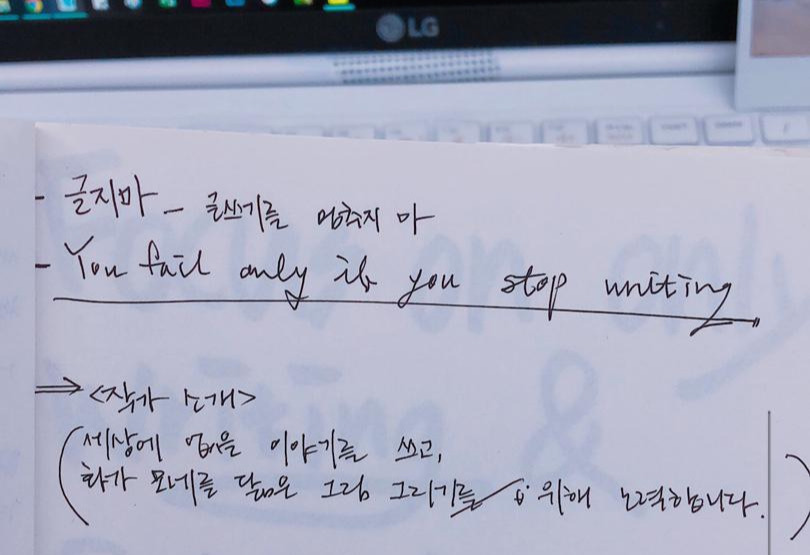 LG
- 글지마 - 글쓰기를 멈추지 마
- You fail only if you stop writing
⇒ <작가 소개>
(세상에 없을 이야기를 쓰고,
화가 모네를 닮은 그림 그리기를 위해 노력합니다.)
Focus on only
writing &